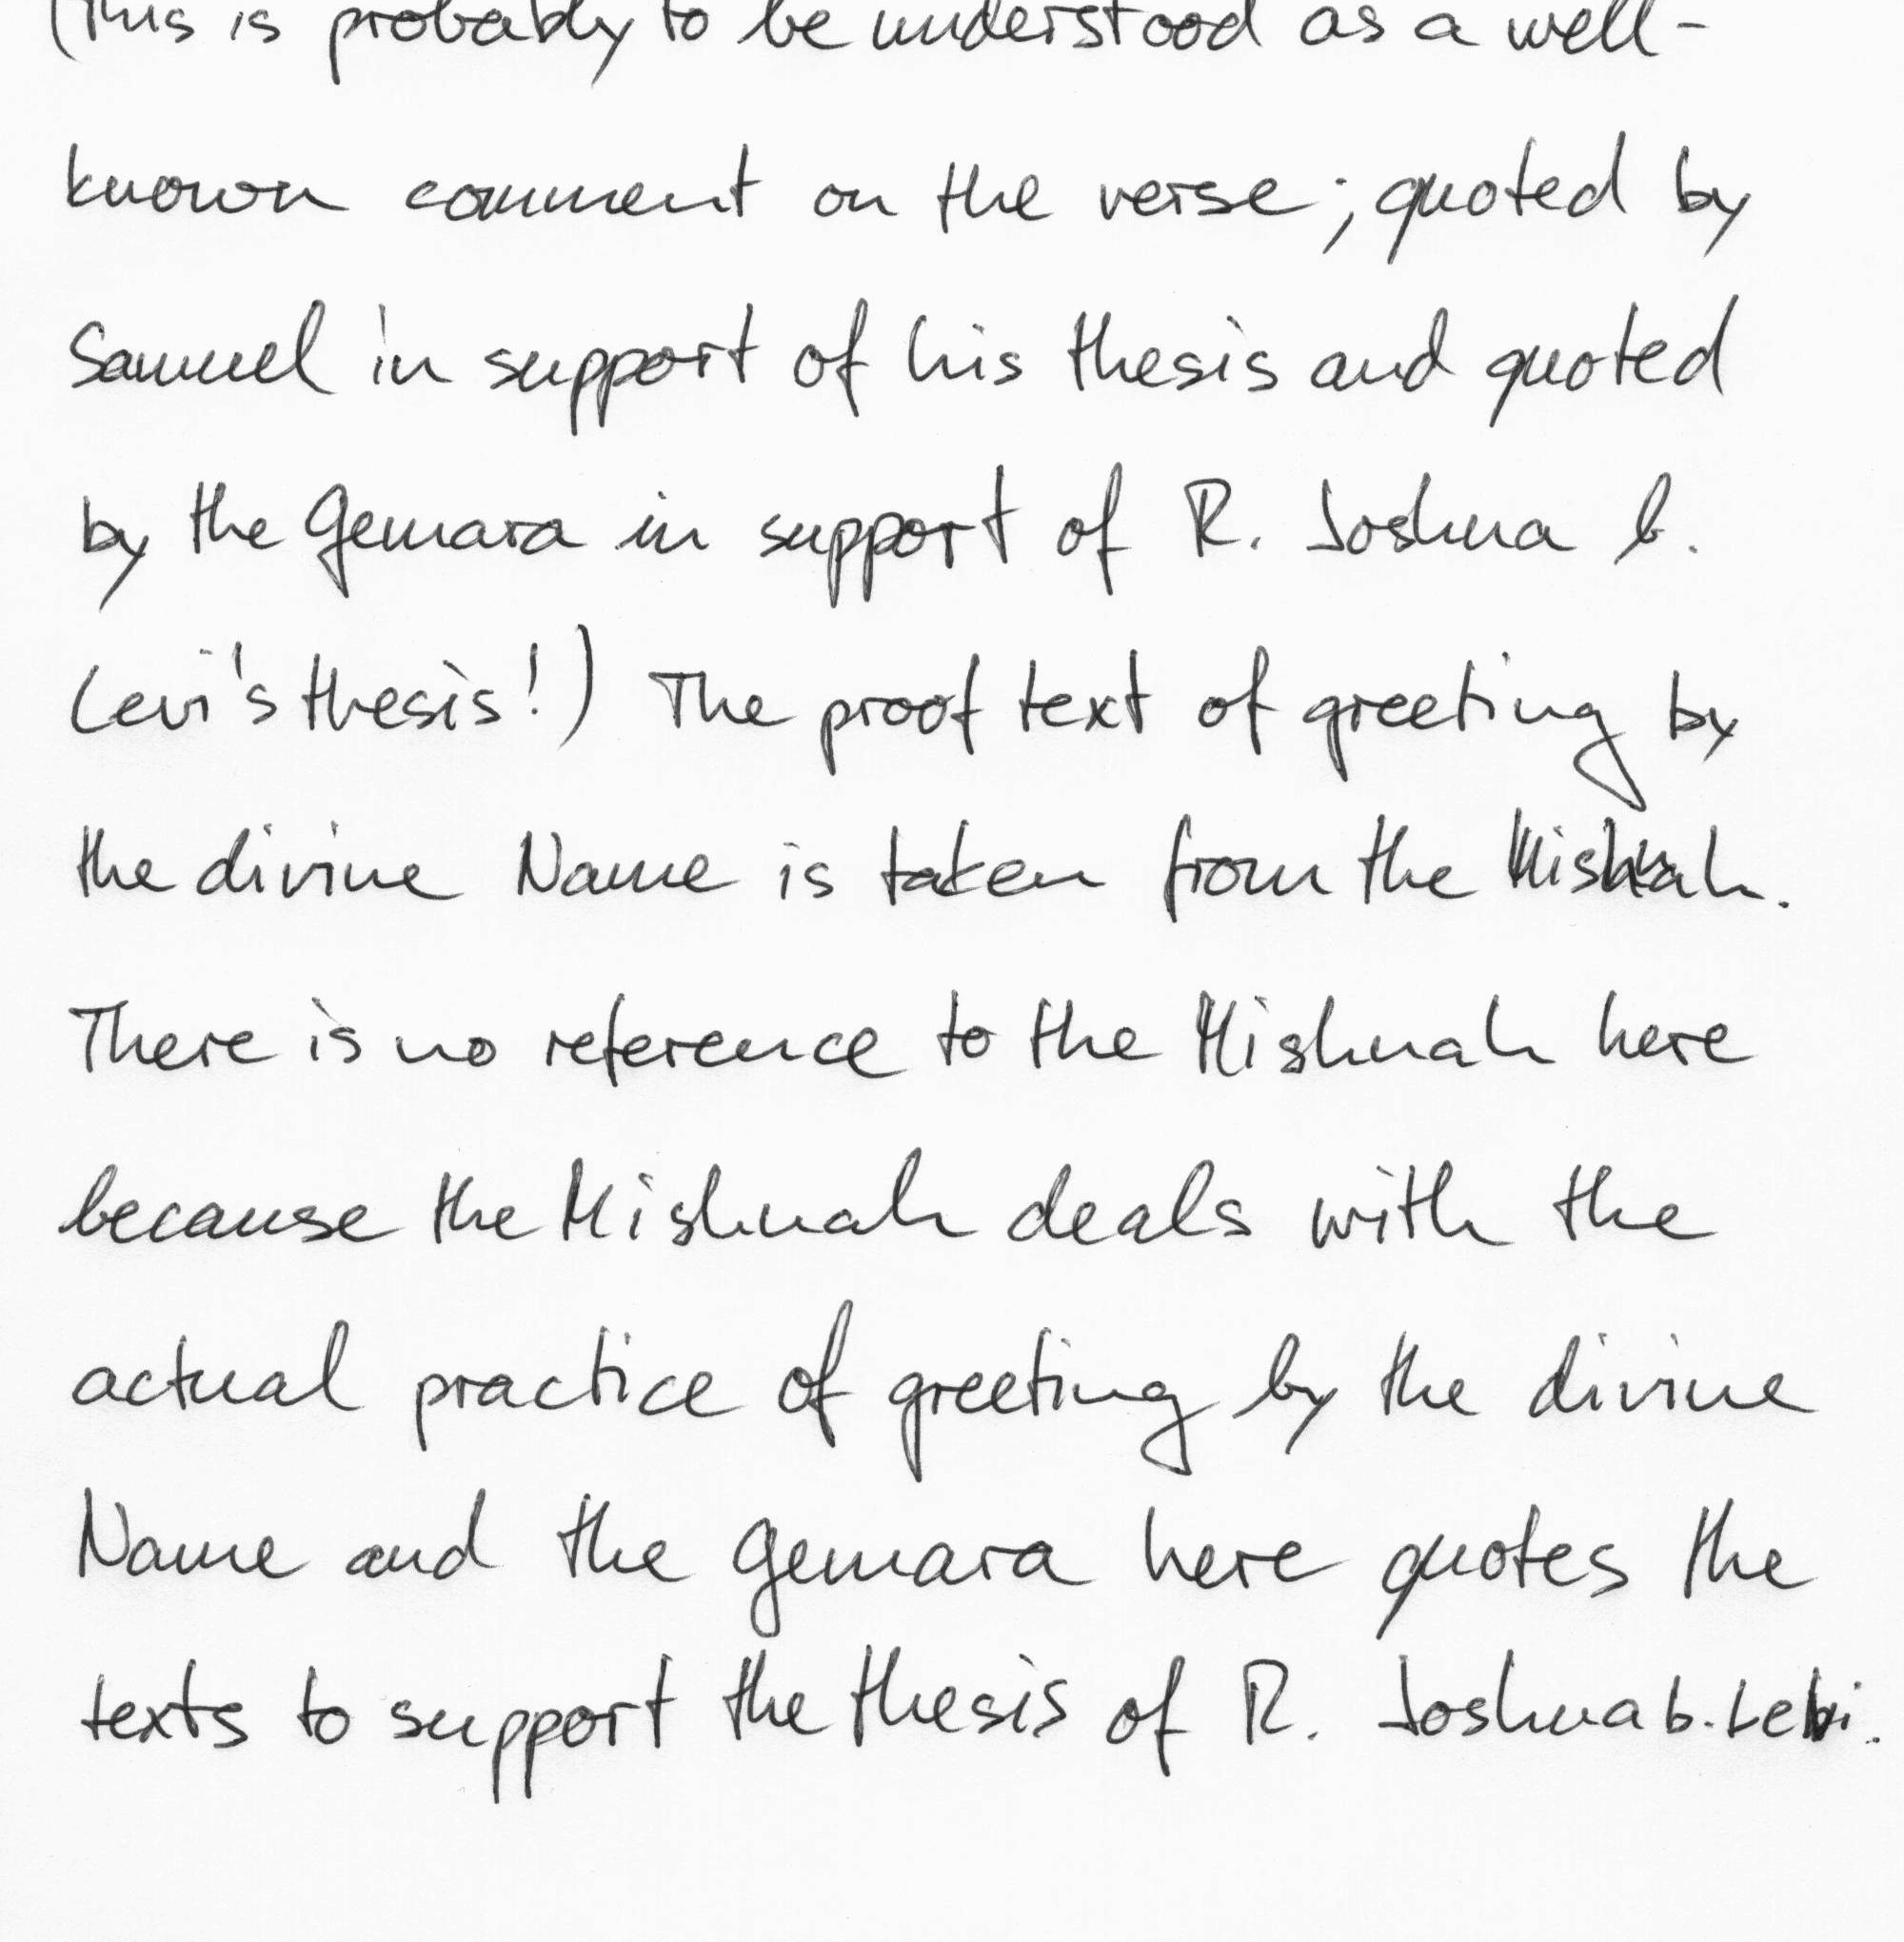 (This is probably to be understood as a well-
known comment on the verse; quoted by
Samuel in support of his thesis and quoted
by the Gemara in support of R. Joshua b.
Levi's thesis!) The proof text of greeting by
the divine Name is taken from the Mishnah.
There is no reference to the Mishnah here
because the Mishnah deals with the
actual practice of greeting by the divine
Name and the Gemara here quotes the
texts to support the thesis of R. Joshua b. Levi.